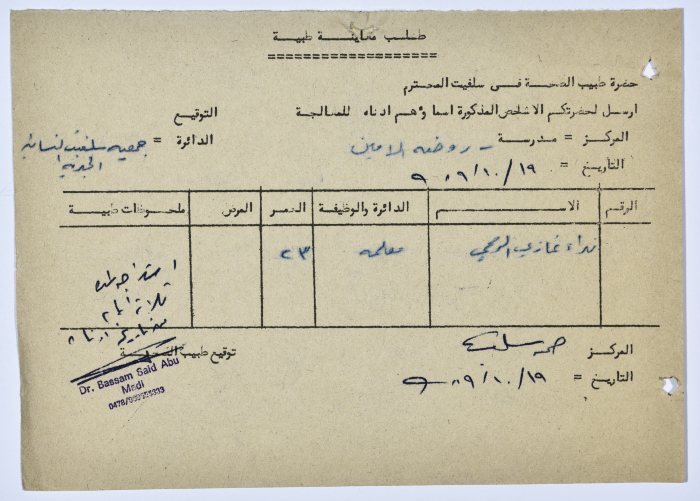 طلب معاينة طبية
حضرة طبيب الصحة في سلفيت المحترم
ارسل لحضرتكم الاشخاص المذكورة اسماؤهم ادناه للمعالجة
التوقيع
المركز = مدرسة - روضة الامين
الدائرة = جمعية سلفيت النسائية الخيرية
التاريخ = ١٩/١٠/٨٩
الرقم الاســـم الدائرة والوظيفة العمر المرض ملحوظات طبية
نداء غازي معلمة ٢٣
استراحة
ثلاثة ايام
من تاريخ ادناه
المركز صحة سلفيت
توقيع طبيب الصحة
التاريخ = ١٩/١٠/٨٩
Dr. Bassam Said Abu
Madi